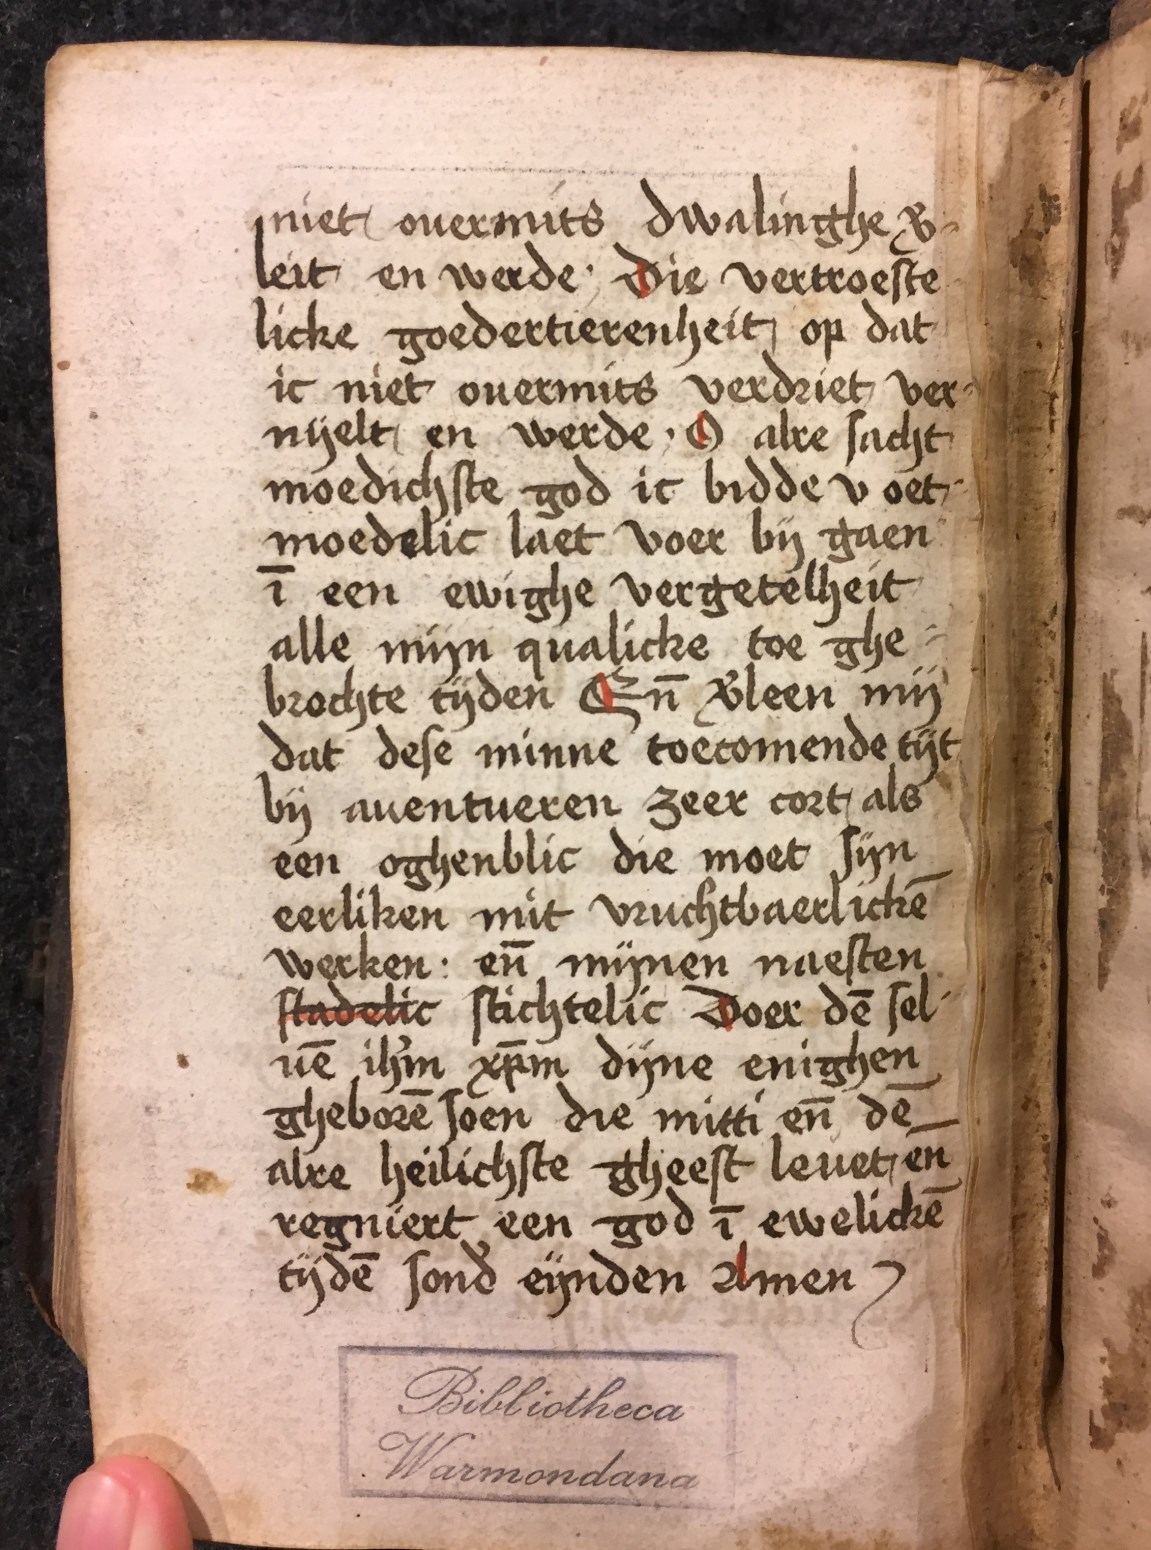 niet ouermits dwalinghe ꝟ-
leit en werde· Die vertroeste
licke goedertierenheit, op dat
ic niet ouermits verdriet ver-
nyelt en werde· O alre sacht
moedichste god ic bidde v oet-
moedelic laet voer bij gaen
ī een ewighe vergetelheit
alle mijn qualicke toe ghe-
brochte tijden En̄ ꝟleen mij
dat dese minne toecomende tijt
bij auentueren zeer cort als
een oghenblic die moet sijn
eerliken mit vruchtbaerlickē
werken: en̄ mijnen naesten
stadelic stichtelic Doer dē sel-
uē ihm̄ xp̄m dijne enighen
gheborē soen die mitti en̄ dē
alre heilichste gheest leuet, en̄
regniert een god ī ewelickē
tijdē sond̄ eijnden Amen
Bibliotheca
Warmondana